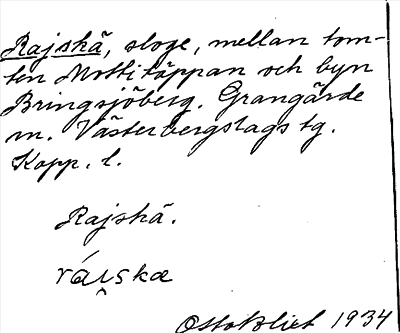 Rajskä, sloge, mellan tom-
ten Mottitäppan och byn
Bringsjöberg. Grangärde
m. Västerbergslags tg.
Kopp. l.
Rajskä.
Otto Blixt 1934